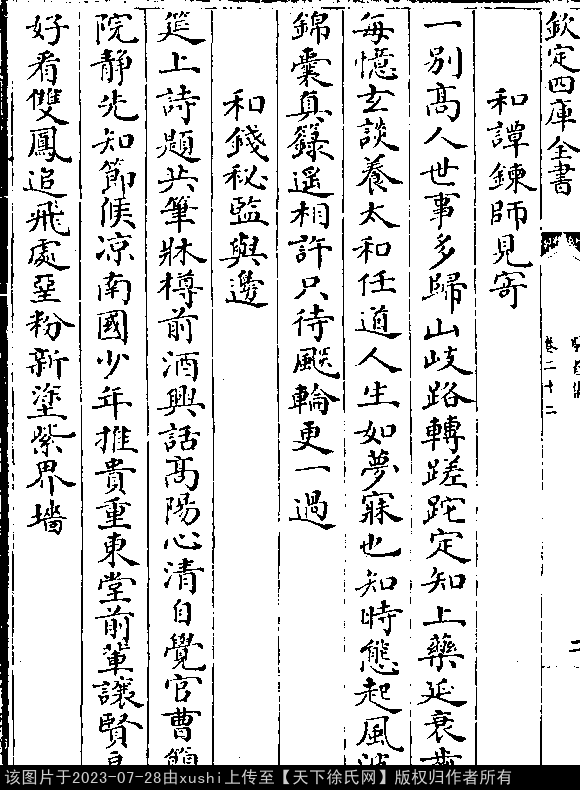 欽定四庫全書
卷二十二
二
和譚鍊師見寄
一別高人世事多歸山岐路轉蹉跎定知上藥延衰
每憶玄談養太和任道人生如夢寐也知時態起風波
錦囊真籙遥相許只待飈輪更一過
和錢秘監與邊
筵上詩題共筆牀樽前酒興話高陽心清自覺官曹簡
院静先知節候凉南國少年推貴重東堂前輩讓賢良
好看雙鳳追飛處堊粉新塗紫界墻
该图片于2023-07-28由xushi上传至【天下徐氏网】版权归作者所有